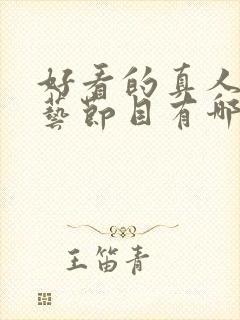 好看的真人
藝節目有哪
王笛青